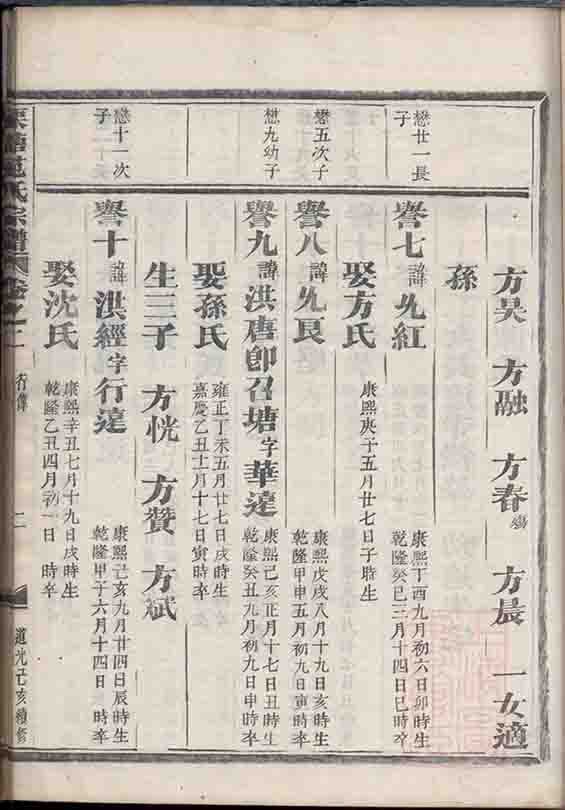 方昊 方融 方春殤 方辰 一女適
孫
懋廿一長子
譽七諱允紅 康熙丁酉九月初六日卯時生 乾隆癸巳三月十四日巳時卒
娶方氏 康熙庚子五月廿七日子時生
懋五次子
譽八諱允良 康熙戊戌八月十九日亥時生 乾隆甲申五月初九日寅時卒
懋九幼子
譽九諱洪唐即召塘字華達 康熙己亥正月十七日丑時生 乾隆癸丑九月初九日申時卒
娶孫氏 雍正丁未五月廿七日戌時生 嘉慶乙丑十一月十七日寅時卒
生三子 方恍 方贊 方斌
懋十一次子
譽十諱洪經字行達 康熙己亥九月廿四日辰時生 乾隆甲子六月十四日 時卒
娶沈氏 康熙辛丑七月十九日戌時生 乾隆乙丑四月初一日 時卒
范氏宗譜 卷之二 行傳 二 道光己亥續修